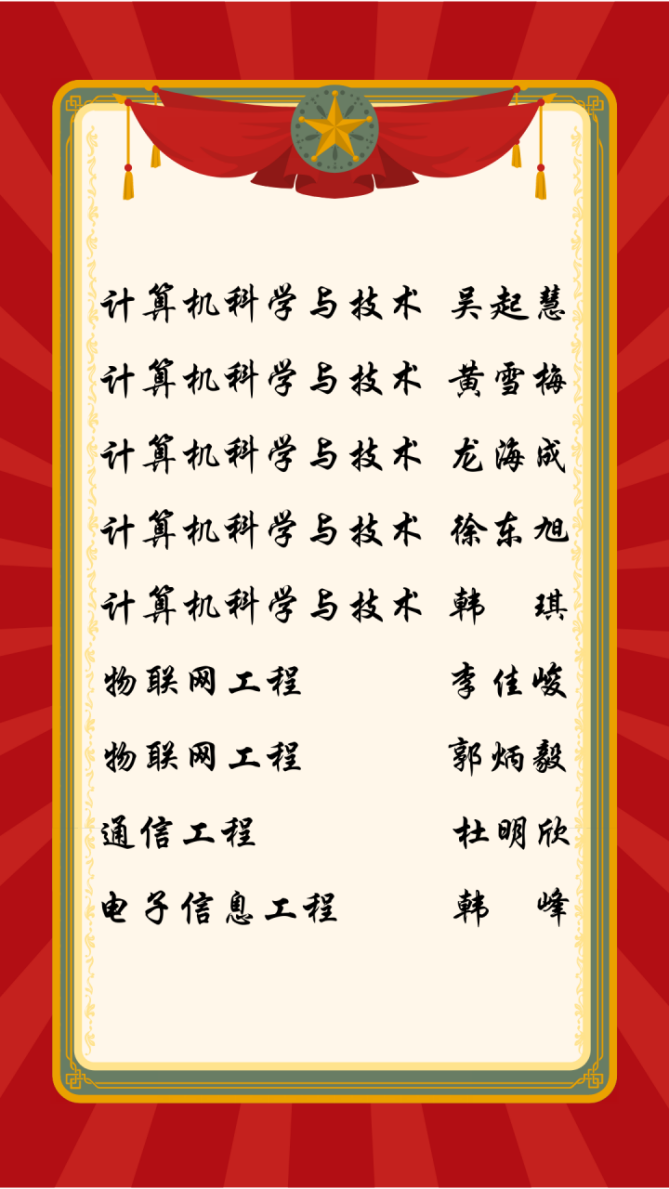 计算机科学与技术 吴起慧
计算机科学与技术 黄雪梅
计算机科学与技术 龙海成
计算机科学与技术 徐东旭
计算机科学与技术 韩 琪
物联网工程 李佳峻
物联网工程 郭炳毅
通信工程 杜明欣
电子信息工程 韩 峰